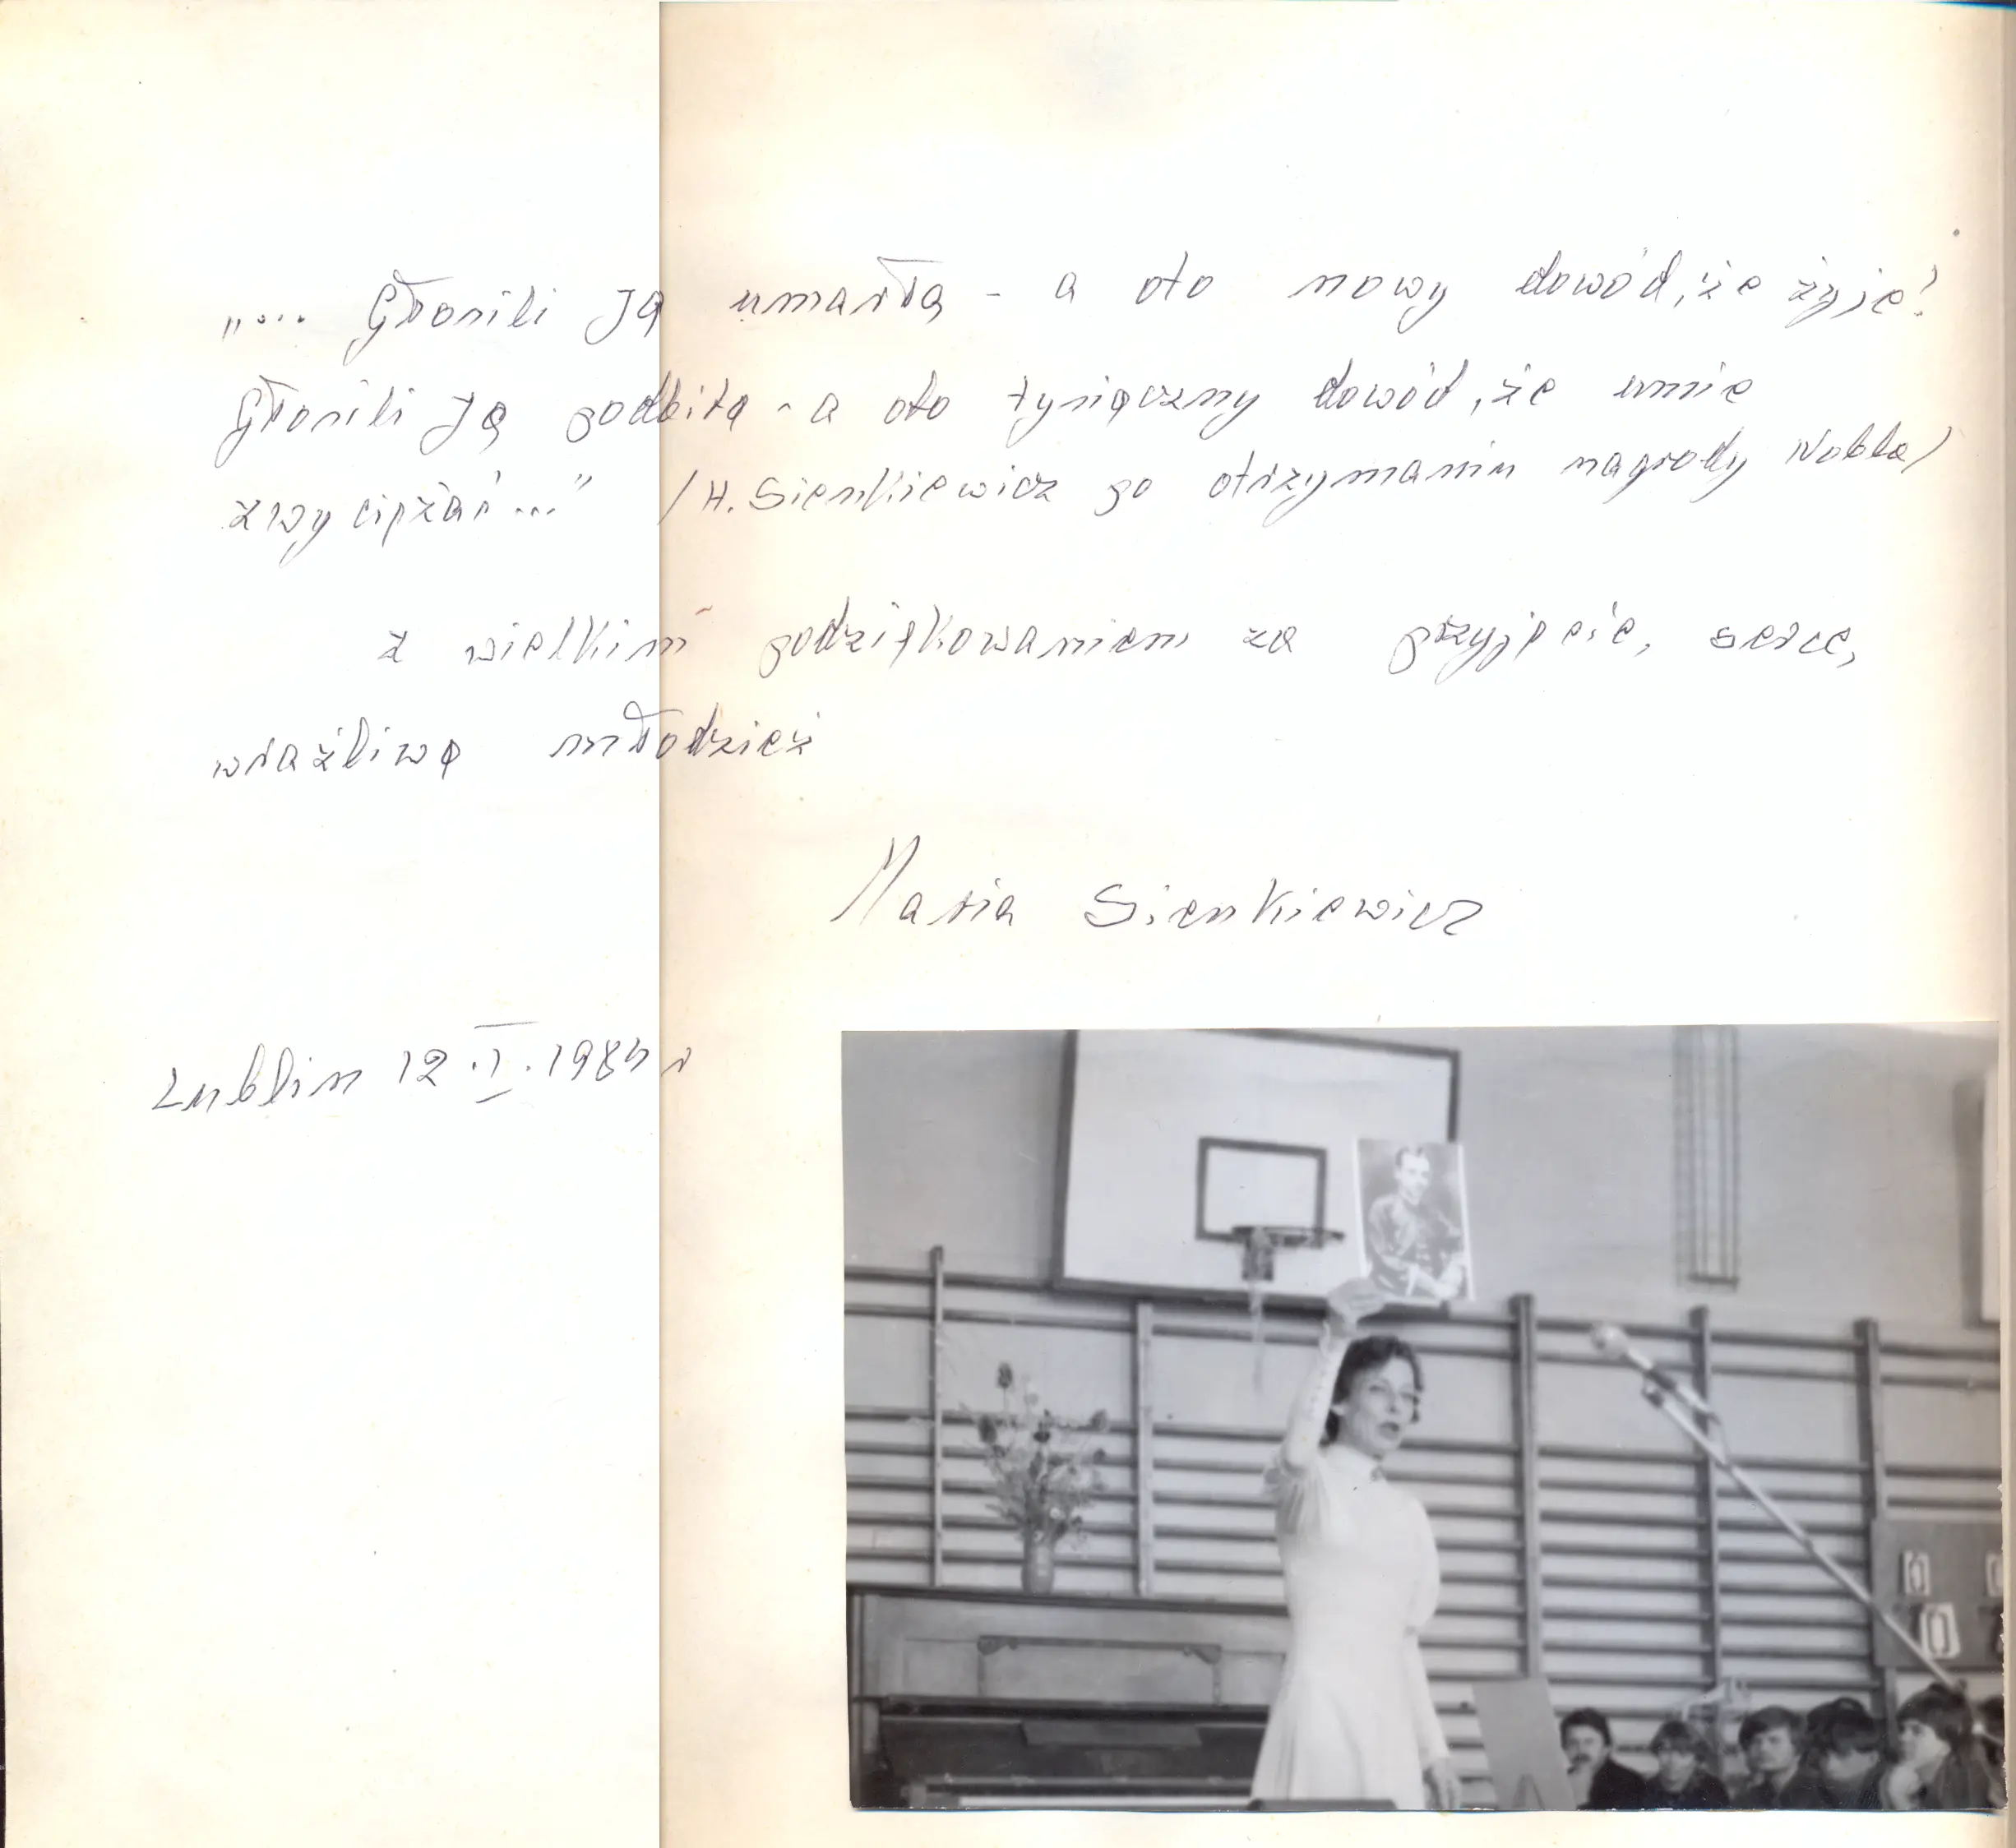 „.... Głosili Ją umarłą - a oto nowy dowód, że żyje!
Głosili Ją podbitą - a oto tysiączny dowód, że umie
zwyciężać..." /H. Sienkiewicz po otrzymaniu nagrody Nobla/
z wielkim podziękowaniem za przyjęcie, serce,
wrażliwą młodzież
Maria Sienkiewicz
Lublin 12.I.1985 r